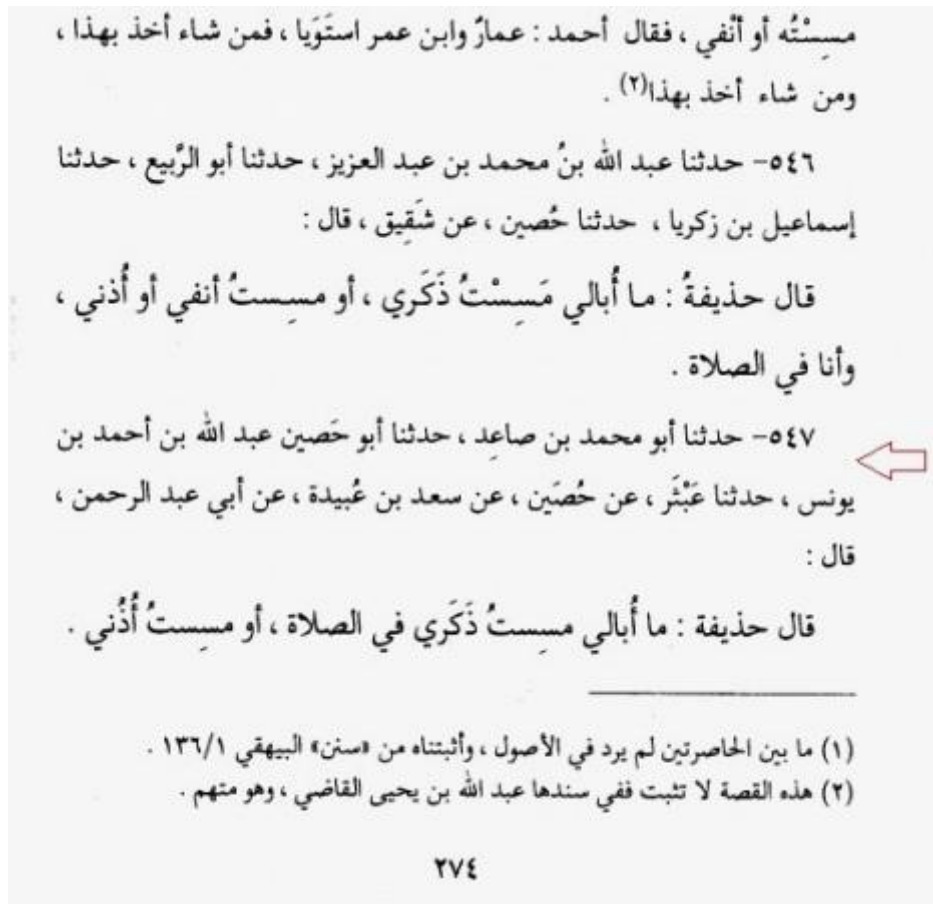 مسِسْتُه أو أنْفي ، فقال أحمد : عمارٌ وابن عمر استَوَيا ، فمن شاء أخذ بهذا ،
ومن شاء أخذ بهذا(٢) .
٥٤٦- حدثنا عبد الله بنُ محمد بن عبد العزيز ، حدثنا أبو الرَّبيع ، حدثنا
إسماعيل بن زكريا ، حدثنا حُصين ، عن شَقِيق ، قال :
قال حذيفةُ : ما أُبالي مَسِسْتُ ذَكَري ، أو مسِستُ أنفي أو أُذني ،
وأنا في الصلاة .
٥٤٧- حدثنا أبو محمد بن صاعِد ، حدثنا أبو حَصين عبد الله بن أحمد بن
يونس ، حدثنا عَبْثَر ، عن حُصَين ، عن سعد بن عُبيدة ، عن أبي عبد الرحمن ،
قال :
قال حذيفة : ما أُبالي مسِستُ ذَكَري في الصلاة ، أو مسِستُ أُذُني .
(١) ما بين الحاصرتين لم يرد في الأصول ، وأثبتناه من «سنن» البيهقي ١٣٦/١ .
(٢) هذه القصة لا تثبت ففي سندها عبد الله بن يحيى القاضي ، وهو متهم .
٢٧٤